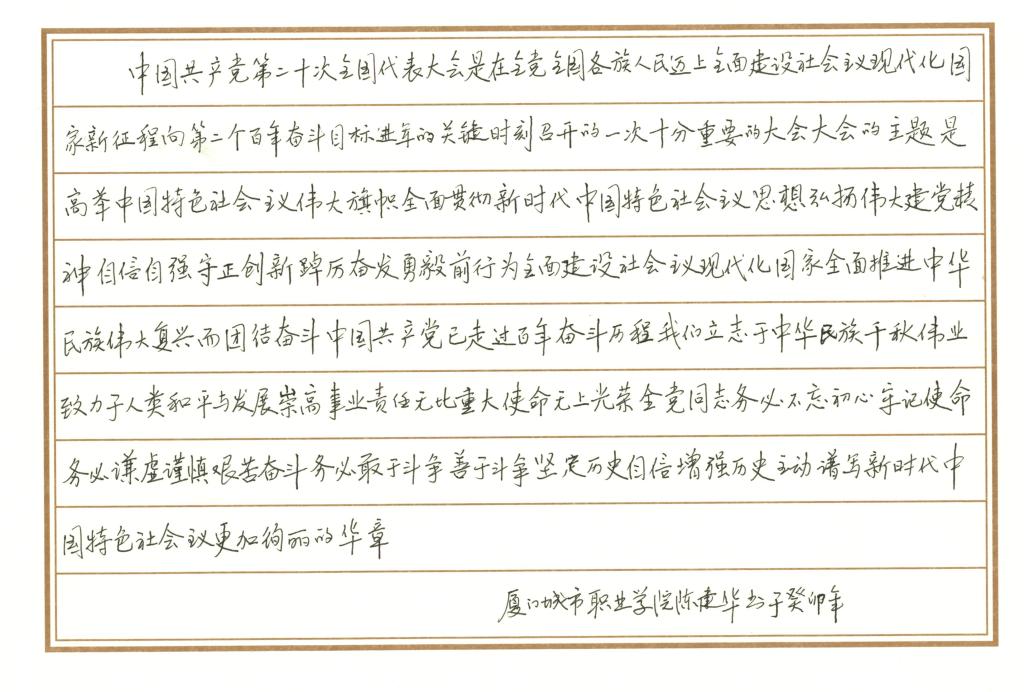 中国共产党第二十次全国代表大会是在全党全国各族人民迈上全面建设社会主义现代化国
家新征程向第二个百年奋斗目标进军的关键时刻召开的一次十分重要的大会大会的主题是
高举中国特色社会主义伟大旗帜全面贯彻新时代中国特色社会主义思想弘扬伟大建党精
神自信自强守正创新踔厉奋发勇毅前行为全面建设社会主义现代化国家全面推进中华
民族伟大复兴而团结奋斗中国共产党已走过百年奋斗历程我们立志于中华民族千秋伟业
致力于人类和平与发展崇高事业责任无比重大使命无上光荣全党同志务必不忘初心牢记使命
务必谦虚谨慎艰苦奋斗务必敢于斗争善于斗争坚定历史自信增强历史主动谱写新时代中
国特色社会主义更加绚丽的华章
厦门城市职业学院陈建华书于癸卯年